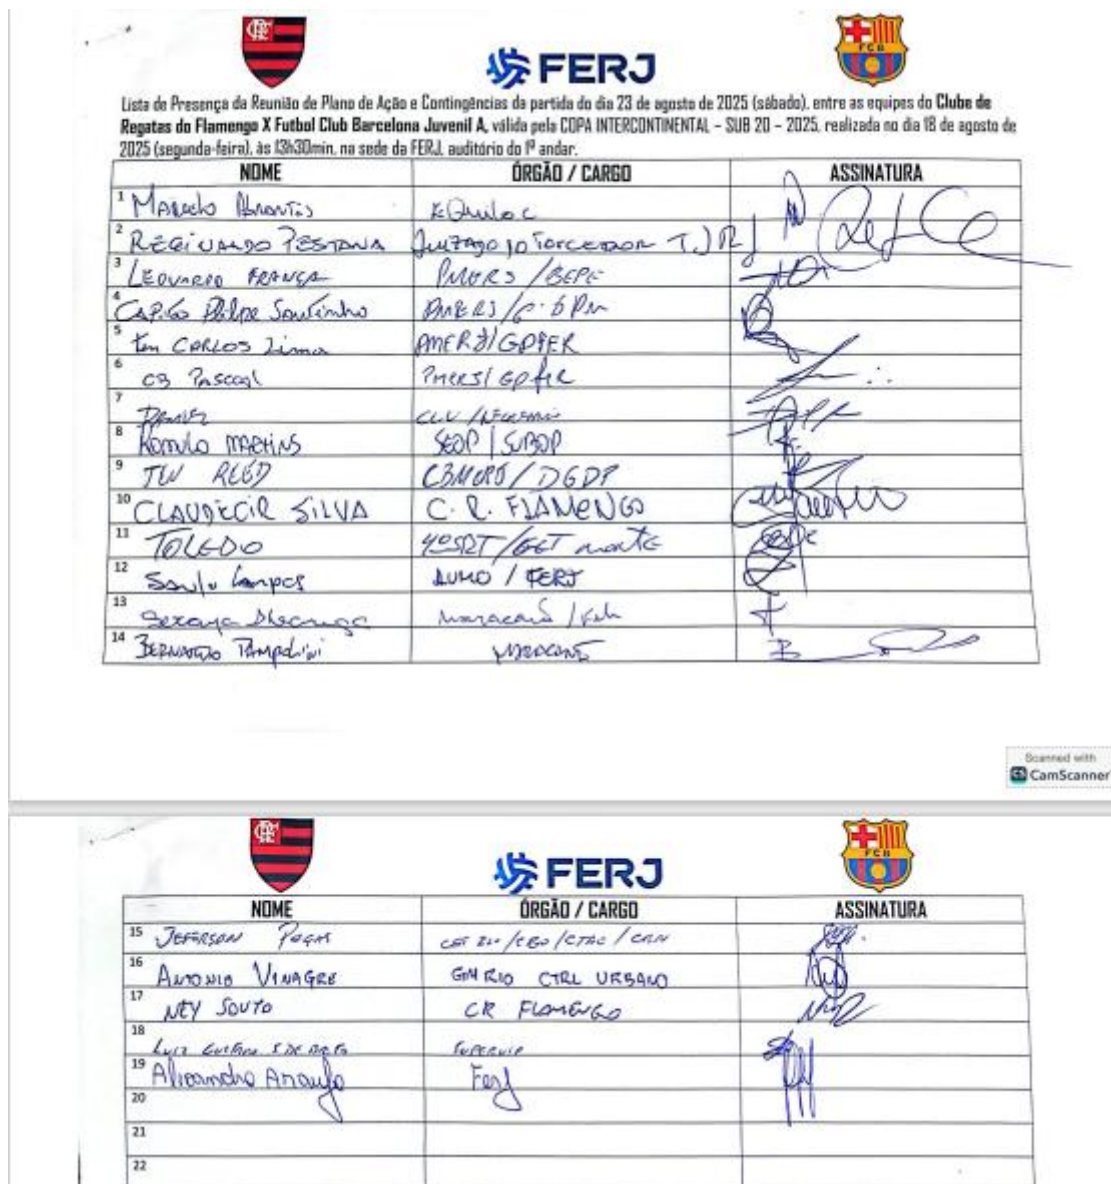 CRF
FERJ
FCB
Lista de Presença da Reunião de Plano de Ação e Contingências da partida do dia 23 de agosto de 2025 (sábado), entre as equipes do Clube de
Regatas do Flamengo X Futbol Club Barcelona Juvenil A, válida pela COPA INTERCONTINENTAL – SUB 20 – 2025, realizada no dia 18 de agosto de
2025 (segunda-feira), às 13h30min, na sede da FERJ, auditório do 1º andar.
NOME ÓRGÃO / CARGO ASSINATURA
1 Marcelo Abrantes
2 REGINALDO PESTANA JUIZADO DO TORCEDOR TJRJ
3 LEONARDO FRANÇA PMERJ / BEPE
4 PMERJ / 6º BPM
5 Ten CARLOS Lima PMERJ / GPFER
6 CB PASCOAL PMERJ / GPFER
7
8 ROMULO MARTINS SEOP / SUBOP
9 CBMERJ / DGDP
10 CLAUDECIR SILVA C. R. FLAMENGO
11 TOLEDO
12 Saulo Campos / FERJ
13 Maracanã /
14 BERNARDO MARACANÃ
Scanned with
CS CamScanner
CRF
FERJ
FCB
NOME ÓRGÃO / CARGO ASSINATURA
15 JEFERSON
16 ANTONIO VINAGRE GM RIO CTRL URBANO
17 NEY SOUTO CR FLAMENGO
18 LUIZ
19 Alexandre Araujo Ferj
20
21
22